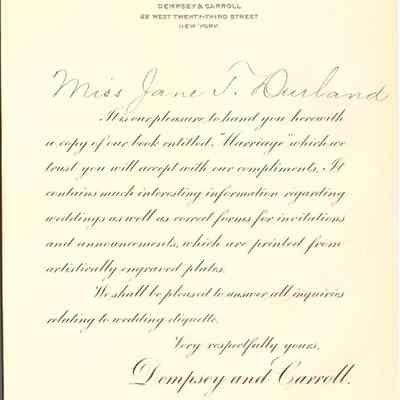 DEMPSEY & CARROLL
22 WEST TWENTY-THIRD STREET
NEW YORK
Miss Jane T. Durland
It is our pleasure to hand you herewith
a copy of our book entitled, "Marriage" which we
trust you will accept with our compliments. It
contains much interesting information regarding
weddings as well as correct forms for invitations
and announcements, which are printed from
artistically engraved plates.
We shall be pleased to answer all inquiries
relating to wedding etiquette.
Very respectfully yours,
Dempsey and Carroll.